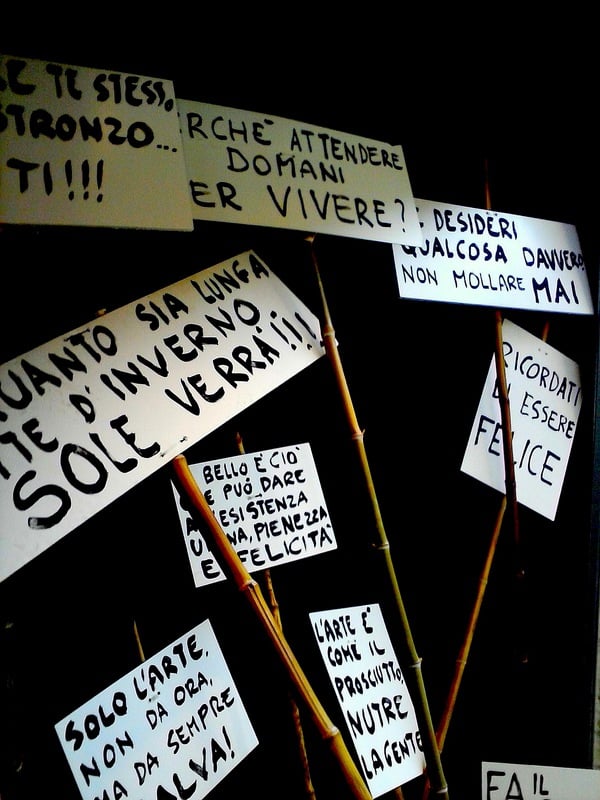 E TE STESS
STRONZO...
TI!!!
ERCHE' ATTENDERE
DOMANI
ER VIVERE?
DESIDERI
QUALCOSA DAVVERO
NON MOLLARE MAI
QUANTO SIA LUNGA
TE D'INVERNO
SOLE VERRA'!!!
RICORDATI
DI ESSERE
FELICE
BELLO E' CIO'
E PUO' DARE
ESISTENZA
UNA, PIENEZZA
E FELICITA'
SOLO L'ARTE,
NON DA ORA,
MA DA SEMPRE
ALVA!
L'ARTE E'
COME IL
PROSCIUTTO,
NUTRE
LA GENTE
FA IL